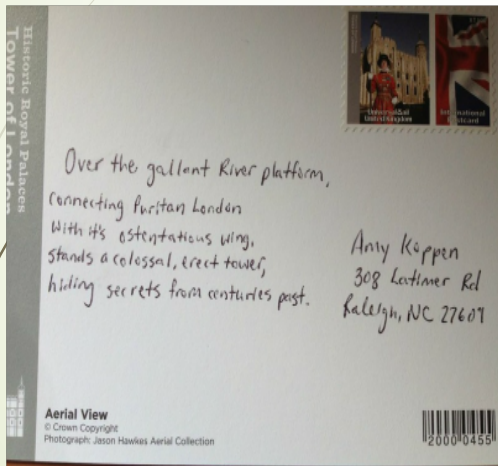 Historic Royal Palaces
Tower of London
Universal Mail
United Kingdom
International
Postcard
Over the gallant River platform,
Connecting Puritan London
With it's ostentatious wing,
stands a colossal, erect tower,
hiding secrets from centuries past.
Amy Koppen
308 Latimer Rd
Raleigh, NC 27609
Aerial View
© Crown Copyright
Photograph: Jason Hawkes Aerial Collection
2000 0455